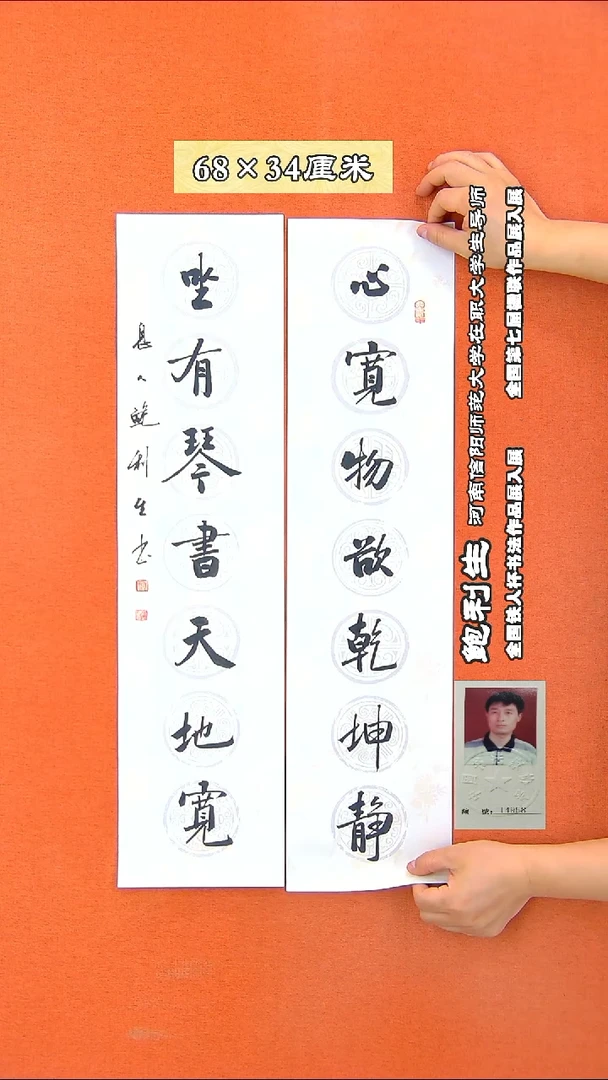 68×34厘米
心寬物欲乾坤静
坐有琴書天地寬
鲍利生书
鲍利生 河南信阳师范大学在职大学生导师
全国铁人杯书法作品展入展 全国第七届楹联作品展入展